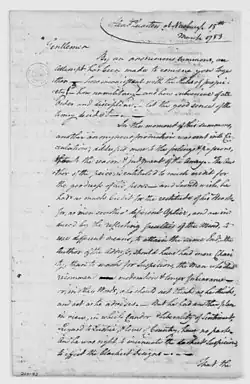 Head Quarters Newburgh 15th
March 1783
Gentlemen
By an anonymous summons, an
attempt has been made to convene you toge-
ther — how inconsistent with the rules of propri-
ety! — how unmilitary! — and how subversive of all
order and discipline — let the good sense of the
Army decide.
In the moment of this summons,
another anonymous production was sent into Cir-
culation; addressed more to the feelings & passions,
than to the reason & judgment of the Army. — The au-
thor of the piece, is entitled to much credit for
the goodness of his Pen: and I could wish he
had as much credit for the rectitude of his Heart —
for, as men see thro' different Optics, and are in-
duced by the reflecting faculties of the Mind, to
use different means to attain the same end: — the
Author of the Address, should have had more Chari-
ty, than to mark for Suspicion, the Man who should
recommend
But he had another plan
in view, in which Candor & liberality of Sentiment,
Regard to Justice, & love of Country, have no part;
and he was right, to insinuate the darkest suspicion,
to effect the blackest designs. —
That the